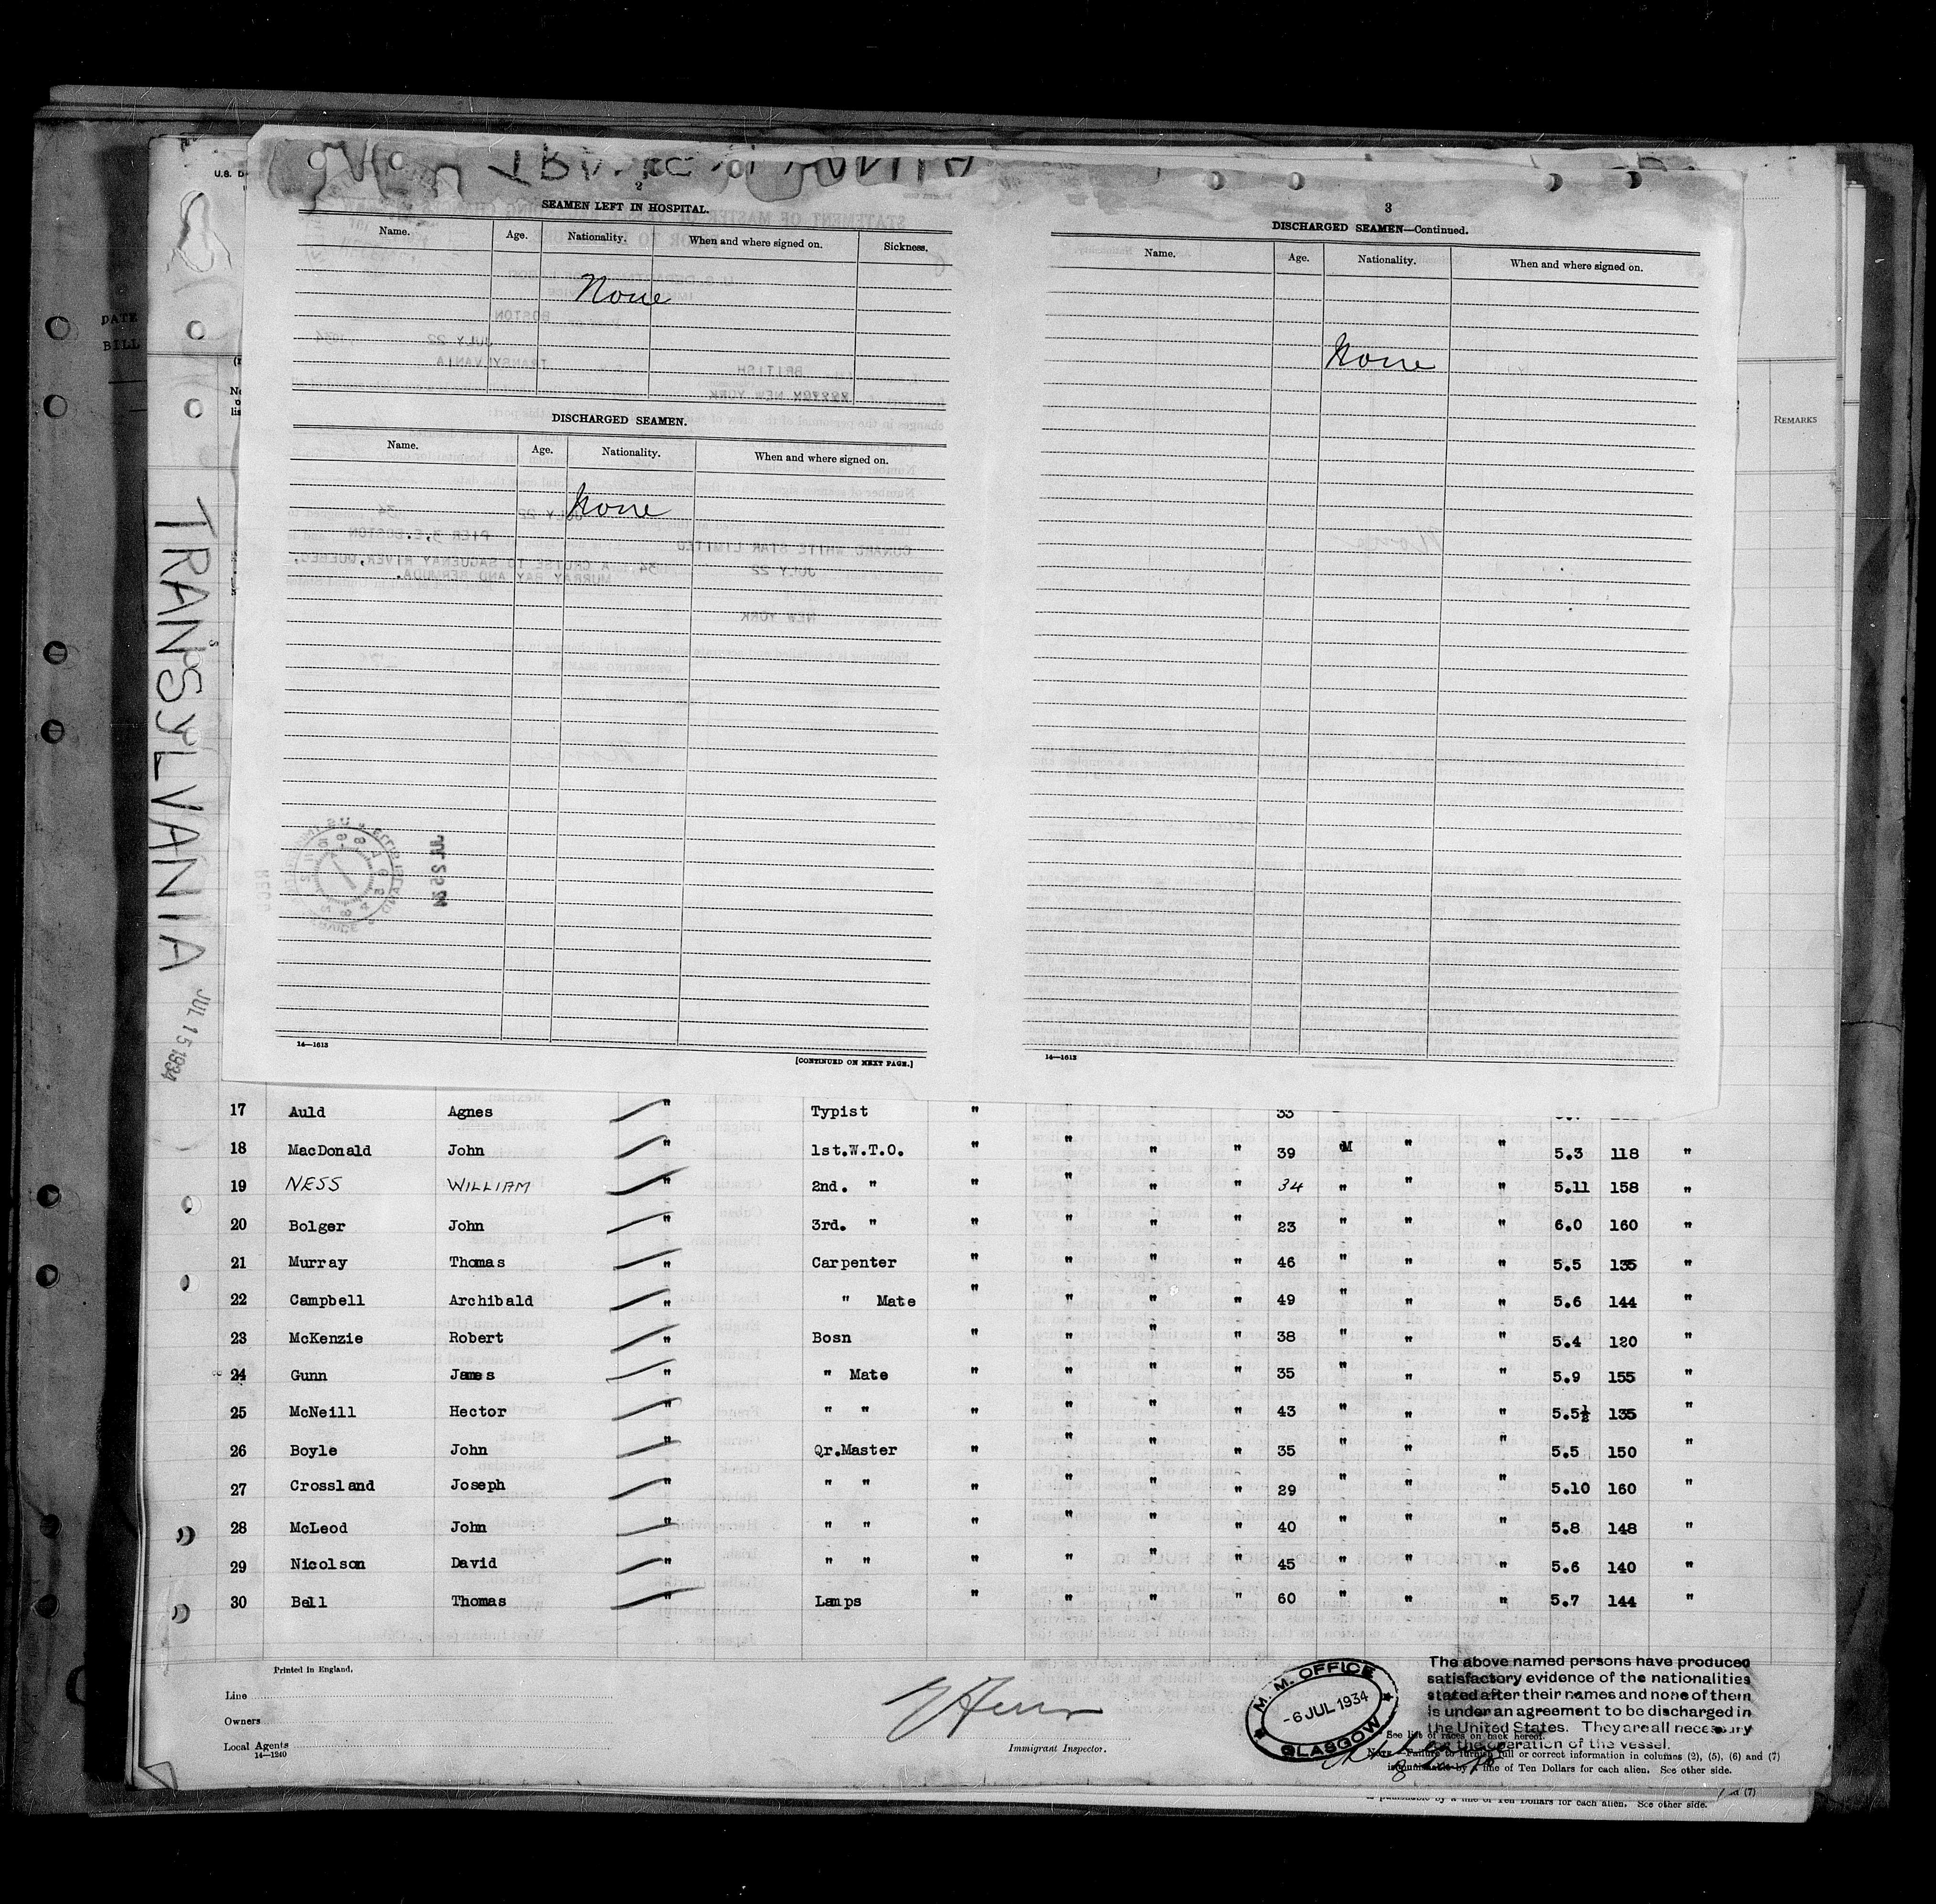 TRANSYLVANIA
JUL 15 1934
DATE
BILL
2
SEAMEN LEFT IN HOSPITAL.
Name. Age. Nationality. When and where signed on. Sickness.
None
DISCHARGED SEAMEN.
Name. Age. Nationality. When and where signed on.
None
14—1613
[CONTINUED ON NEXT PAGE.]
3
DISCHARGED SEAMEN—Continued.
Name. Age. Nationality. When and where signed on.
None
14—1613
REMARKS
17 Auld Agnes " Typist " " " " 33
18 MacDonald John " 1st.W.T.O. " " " " 39 M " " 5.3 118 "
19 NESS WILLIAM " 2nd. " " " " " 34 " " " 5.11 158 "
20 Bolger John " 3rd. " " " " " 23 " " " 6.0 160 "
21 Murray Thomas " Carpenter " " " " 46 " " " 5.5 135 "
22 Campbell Archibald " " Mate " " " " 49 " " " 5.6 144 "
23 McKenzie Robert " Bosn " " " " 38 " " " 5.4 120 "
24 Gunn James " " Mate " " " " 35 " " " 5.9 155 "
25 McNeill Hector " " " " " " " 43 " " " 5.5½ 135 "
26 Boyle John " Qr.Master " " " " 35 " " " 5.5 150 "
27 Crossland Joseph " " " " " " " 29 " " " 5.10 160 "
28 McLeod John " " " " " " " 40 " " " 5.8 148 "
29 Nicolson David " " " " " " " 45 " " " 5.6 140 "
30 Bell Thomas " Lamps " " " " 60 " " " 5.7 144 "
Printed in England.
Line
Owners
Local Agents
14—1240
Immigrant Inspector.
M. M. OFFICE
-6 JUL 1934
GLASGOW
The above named persons have produced
satisfactory evidence of the nationalities
stated after their names and none of them
is under an agreement to be discharged in
the United States. They are all necessary
for the operation of the vessel.
See list of races on back hereof.
NOTE.—Failure to furnish full or correct information in columns (2), (5), (6) and (7)
is punishable by a fine of Ten Dollars for each alien. See other side.
is punishable by a fine of Ten Dollars for each alien. See other side.